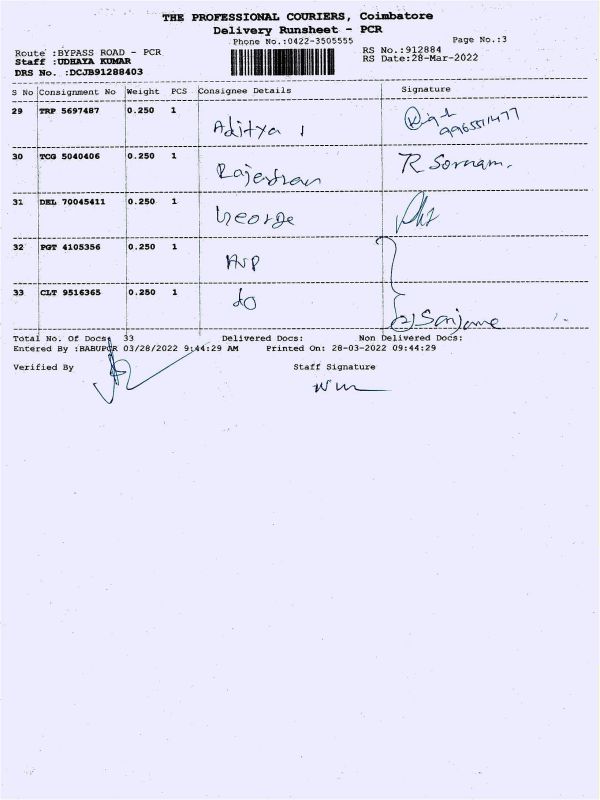 THE PROFESSIONAL COURIERS, Coimbatore
Delivery Runsheet - PCR
Phone No.:0422-3505555 Page No.:3
Route :BYPASS ROAD - PCR RS No.:912884
Staff :UDHAYA KUMAR RS Date:28-Mar-2022
DRS No. :DCJB91288403
S No Consignment No Weight PCS Consignee Details Signature
29 TRP 5697487 0.250 1 Aditya
30 TCG 5040406 0.250 1 Rajendran R Sornam.
31 DEL 70045411 0.250 1 George
32 PGT 4105356 0.250 1
33 CLT 9516365 0.250 1 do
Total No. Of Docs: 33 Delivered Docs: Non Delivered Docs:
Entered By :BABUPCR 03/28/2022 9:44:29 AM Printed On: 28-03-2022 09:44:29
Verified By Staff Signature